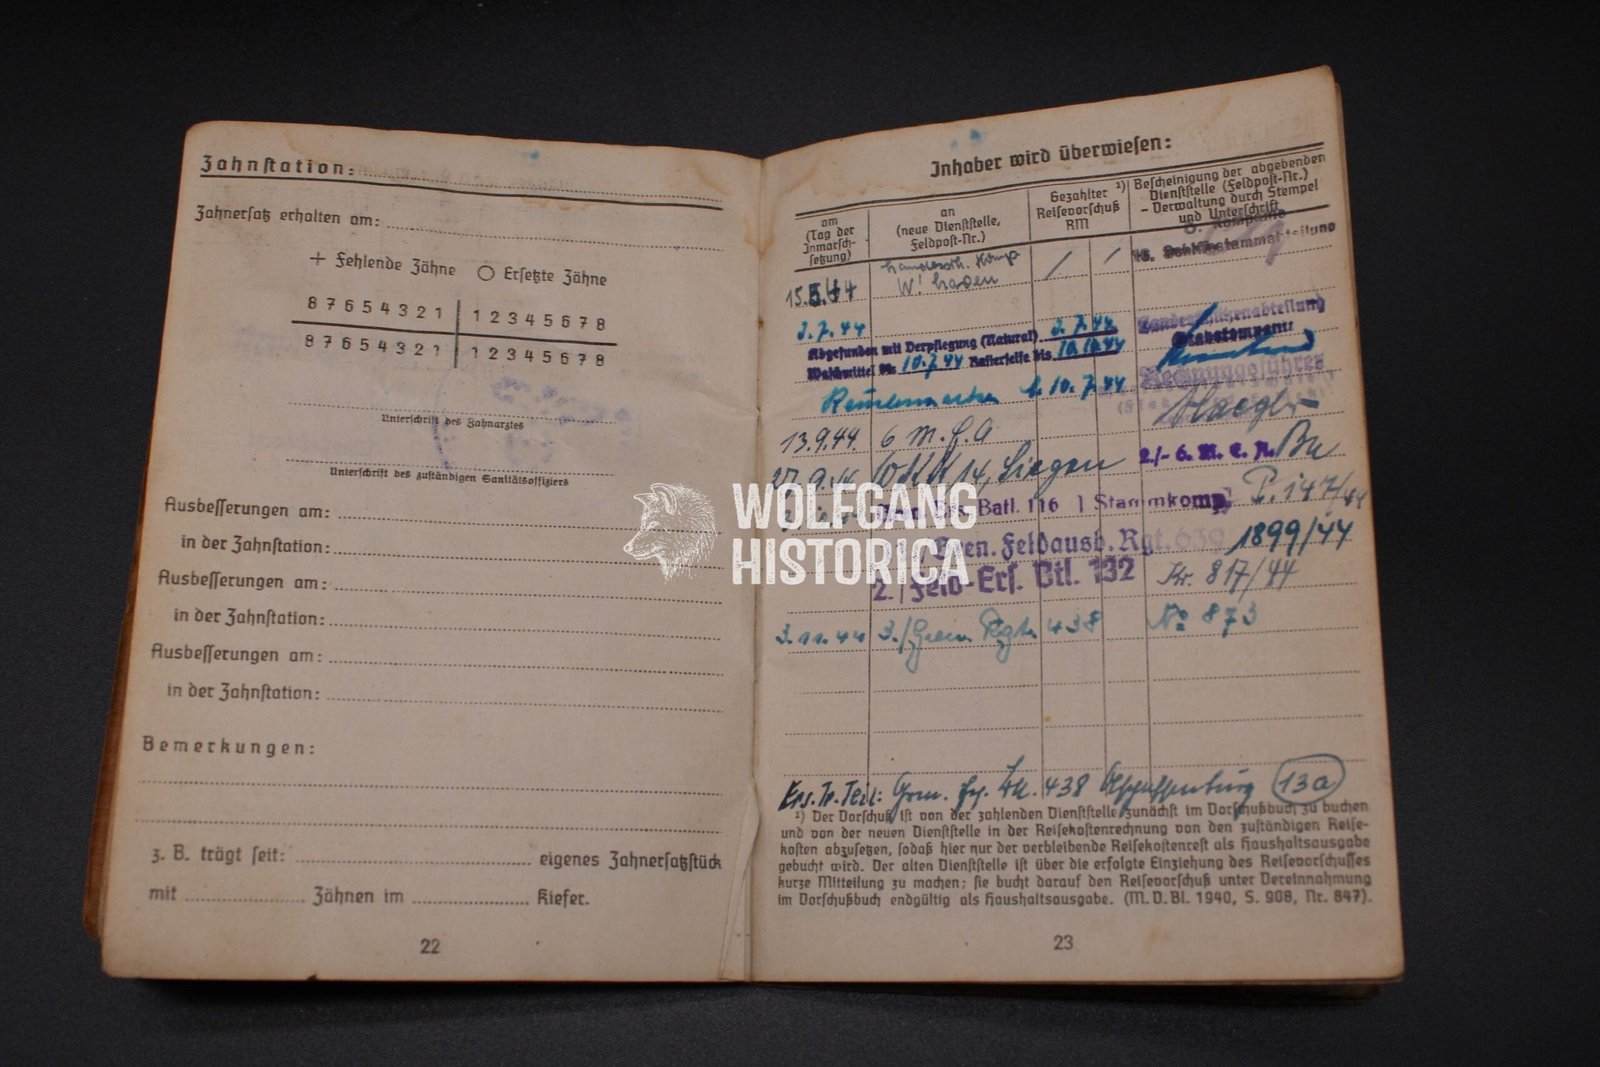 Zahnstation:
Zahnersatz erhalten am:
+ Fehlende Zähne ○ Ersetzte Zähne
8 7 6 5 4 3 2 1 | 1 2 3 4 5 6 7 8
8 7 6 5 4 3 2 1 | 1 2 3 4 5 6 7 8
Unterschrift des Zahnarztes
Unterschrift des zuständigen Sanitätsoffiziers
Ausbesserungen am:
in der Zahnstation:
Ausbesserungen am:
in der Zahnstation:
Ausbesserungen am:
in der Zahnstation:
Bemerkungen:
z. B. trägt seit: eigenes Zahnersatzstück
mit Zähnen im Kiefer.
22
Inhaber wird überwiesen:
am
(Tag der
Inmarsch-
setzung)
an
(neue Dienststelle,
Feldpost-Nr.)
Gezahlter ¹)
Reisevorschuß
RM
Bescheinigung der abgebenden
Dienststelle (Feldpost-Nr.)
- Verwaltung durch Stempel
und Unterschrift
15.5.44
3.7.44
Abgefunden mit Verpflegung (Natural) 2.7.44
Waschmittel bis 10.7.44 Rasierseife bis 10.10.44
10.7.44
Rechnungsführer
13.9.44 6 M.E.A
2./- 6. M. E. A.
27.9.44 14, Siegen
Ers. Batl. 116 | Stammkomp. 147/44
Gren. Feldausb. Rgt. 639 1899/44
2./Feld-Ers. Btl. 132 Kr. 817/44
3.11.44 3./Gren. Rgt. 438 No 873
Ers. Tr. Teil: Gren. 438 Aschaffenburg 13a
¹) Der Vorschuß ist von der zahlenden Dienststelle zunächst im Vorschußbuch zu buchen
und von der neuen Dienststelle in der Reisekostenrechnung von den zuständigen Reise-
kosten abzusetzen, sodaß hier nur der verbleibende Reisekostenrest als Haushaltsausgabe
gebucht wird. Der alten Dienststelle ist über die erfolgte Einziehung des Reisevorschusses
kurze Mitteilung zu machen; sie bucht darauf den Reisevorschuß unter Vereinnahmung
im Vorschußbuch endgültig als Haushaltsausgabe. (M. V. Bl. 1940, S. 908, Nr. 847).
23
WOLFGANG
HISTORICA